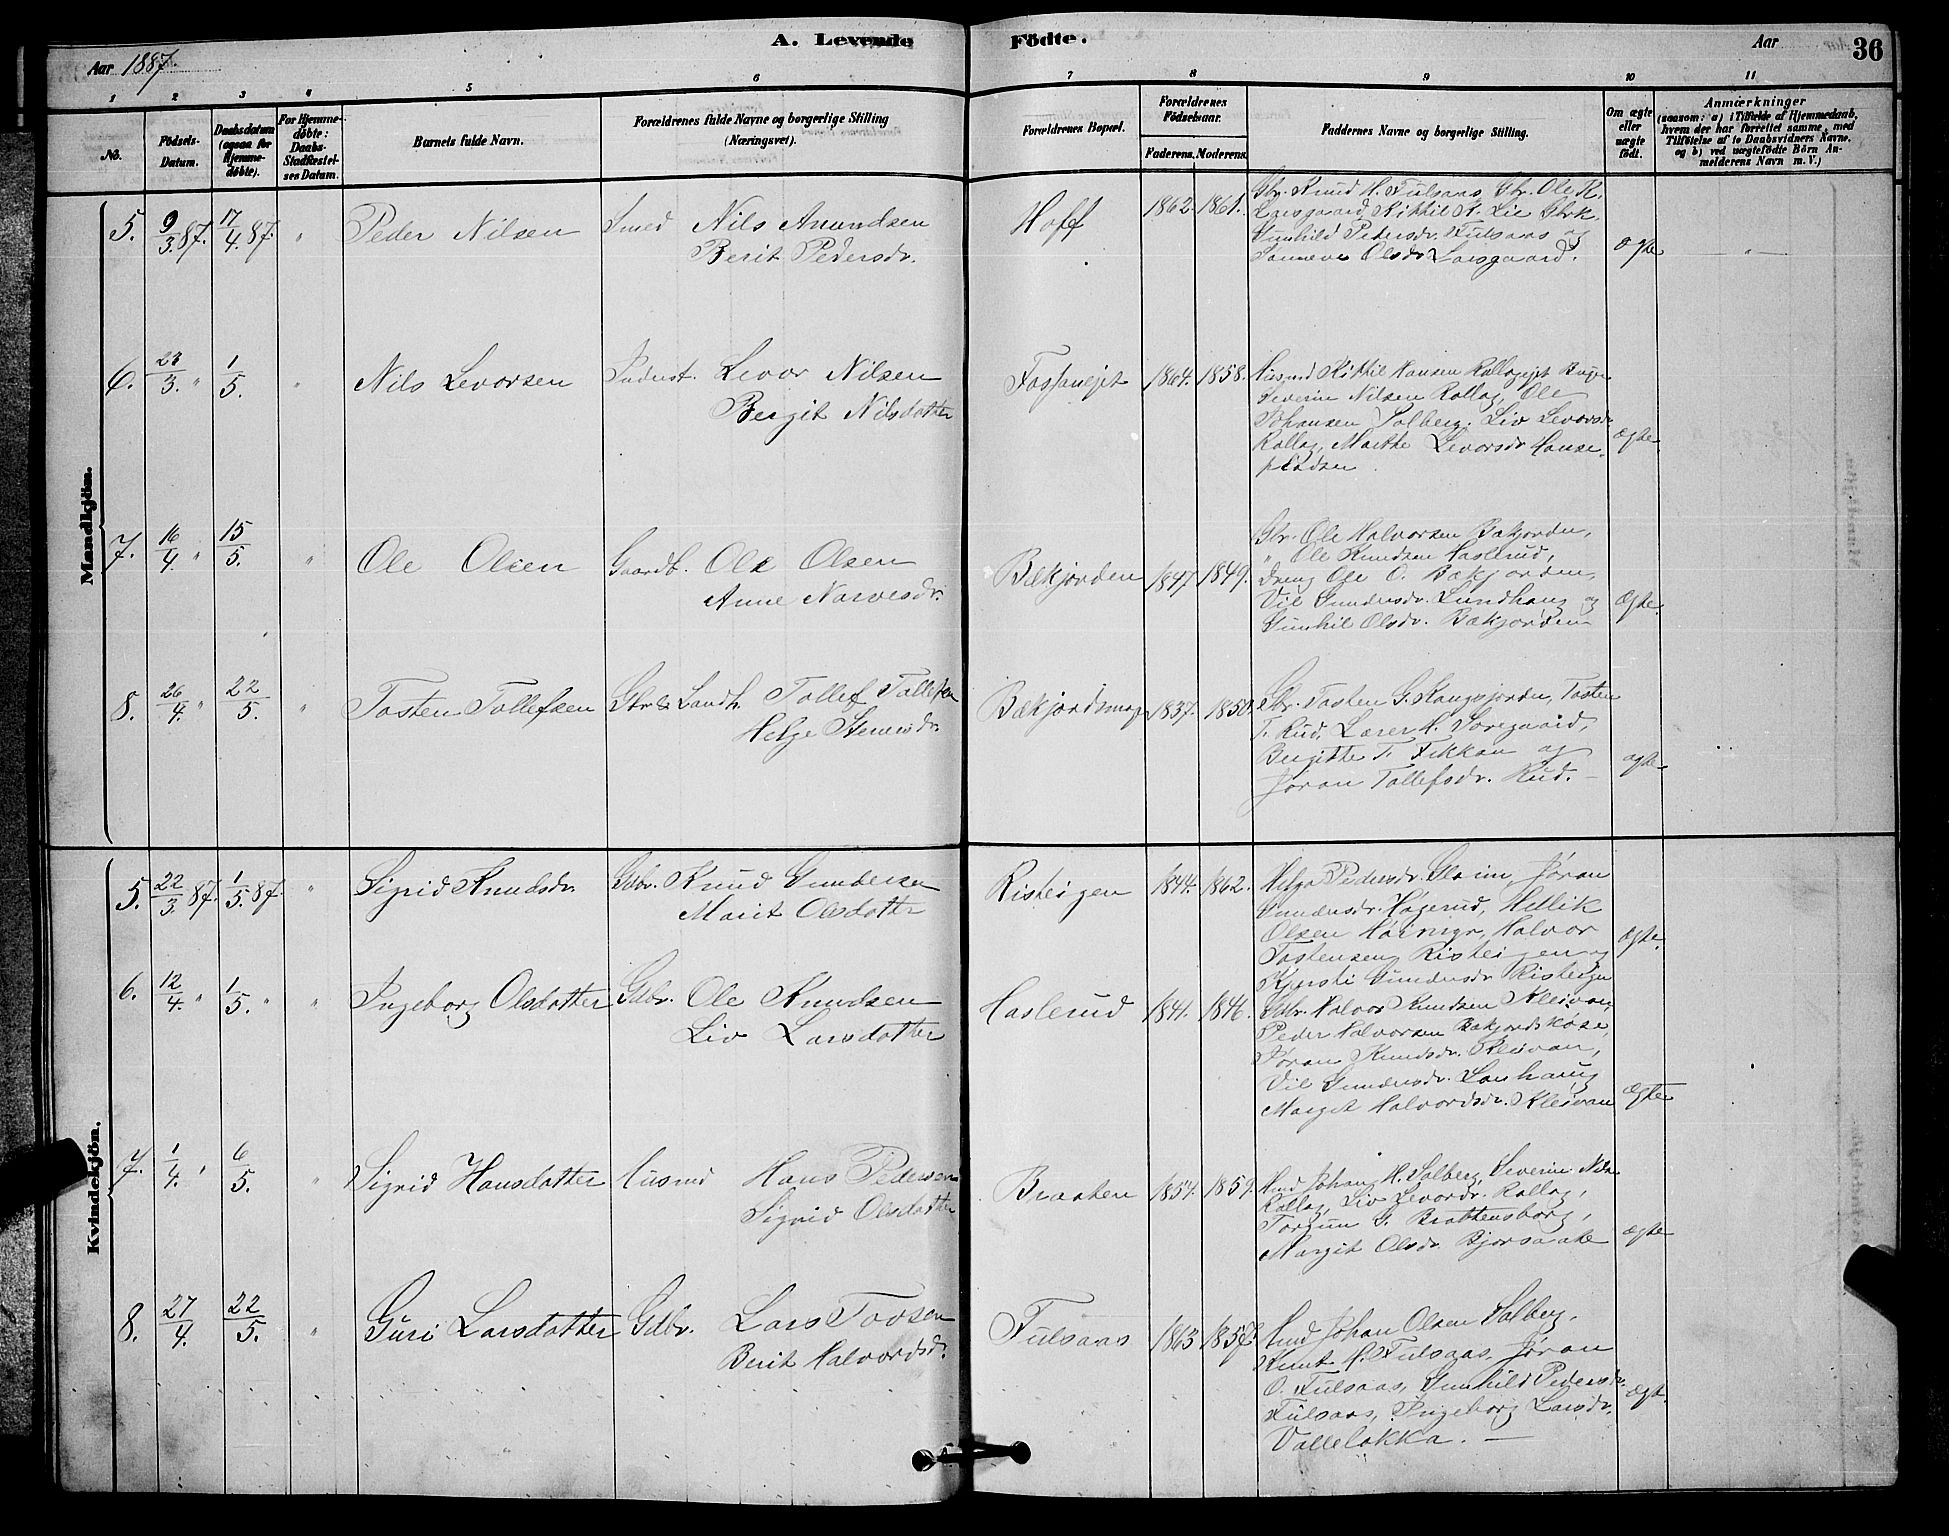 A. Levende Födte.
Aar 1887.
Aar
36
1 2 3 4 5 6 7 8 9 10 11
No.
Födsels-Datum.
Daabsdatum (ogsaa for Hjemme-döbte).
For Hjemme-döbte: Daabs-Stadfæstel-ses Datum.
Barnets fulde Navn.
Forældrenes fulde Navne og borgerlige Stilling (Næringsvei).
Forældrenes Bopæl.
Forældrenes Födselsaar.
Faderens. Moderens.
Faddernes Navne og borgerlige Stilling.
Om ægte eller uægte födt.
Anmærkninger
(saasom: a) i Tilfælde af Hjemmedaab, hvem der har forrettet samme, med Tilföielse af to Daabsvidners Navne, og b) ved uægtefödte Börn An-melderens Navn m. V.)
Mandkjön.
5. 9/3 87. 17/4 87. " Peder Nilsen Smed Nils Amundsen
Berit Pedersdr.
Hoff 1862. 1861.
Gbr. Knud H. Fulsaas, Gbr. Ole K.
Larsgaard, Kittil K. Lie Gbrk.
Gunhild Pedersdr. Fulsaas og
Sanneve Olsdr. Larsgaard.
ægte — " —
6. 23/3 " 1/5. " Nils Levorsen Inderst. Levor Nilsen
Bergit Nilsdatter
Fosfanejet 1864. 1858.
Husmd Kittil Hansen Rollagejet
Severin Nilsen Rollag, Ole
Johansen Solberg. Liv Levorsdr.
Rollag, Marthe Levorsdr Hanse-
pladsen.
Ægte.
7. 16/4. " 15/5. " Ole Olsen Gaardb. Ole Olsen
Anne Narvesdr.
Bækjorden 1847. 1849.
Gbr. Ole Halvorsen Bækjorden,
" Ole Knudsen Haslerud,
Dreng Ole O. Bækjorden,
Vil Gundersdr. Lundhaug og
Gunhil Olsdr. Bækjorden
Ægte.
8. 26/4. " 22/5. " Tosten Tollefsen Gbr & Landh. Tollef Tollefsen
Helge Stenersdr.
Bækjordsmog 1837. 1850.
Gbr. Tosten G. Kongsjorden, Tosten
T. Rud. Larer H. Soregaard,
Birgitte T. Fekkan og
Jøran Tollefsdr. Rud. —
ægte
Kvindekjön.
5. 22/3. 87. 1/5. 87. " Sigrid Knudsdr. Gdbr. Knud Gundersen
Marit Olsdatter
Risteigen 1844. 1862.
Helga Pedersdr. Gloim, Jøran
Gundersdr. Høgerud, Hellik
Olsen, Halvor
Tostensen Risteigen og
Kjersti Gundersdr. Risteigen
Ægte.
6. 12/4. " 1/5. " " Ingeborg Olsdatter Gdbr. Ole Knudsen
Liv Larsdatter
Haslerud 1841. 1846.
Gdbr. Halvor Knudsen Kleivan,
Peder Halvorsen Bækjordskøse,
Jøran Knudsdr. Kleivan,
Vil Gundersdr. Lonhaug
Margit Halvordsdr. Kleivan
Ægte
7. 1/4. " 6/5. " Sigrid Hansdatter Husmd Hans Pedersen
Sigrid Olsdatter
Braaten 1854. 1859.
Hmd Johan H. Solberg, Severin Nils.
Rollag, Liv Levordr. Rollag,
Torgun G. Brattensborg,
Margit Olsdr. Bjorsaate
Ægte
8. 27/4. 22/5. " Guri Larsdatter Gdbr. Lars Torsen
Berit Halvordsdr.
Fulsaas 1863 1857.
Hmd Johan Olsen Solberg.
Knut H. Fulsaas, Jøran
O. Fulsaas, Gunhild Pedersdr.
Fulsaas, Ingeborg Larsdr.
Valleløkka. —
Ægt.